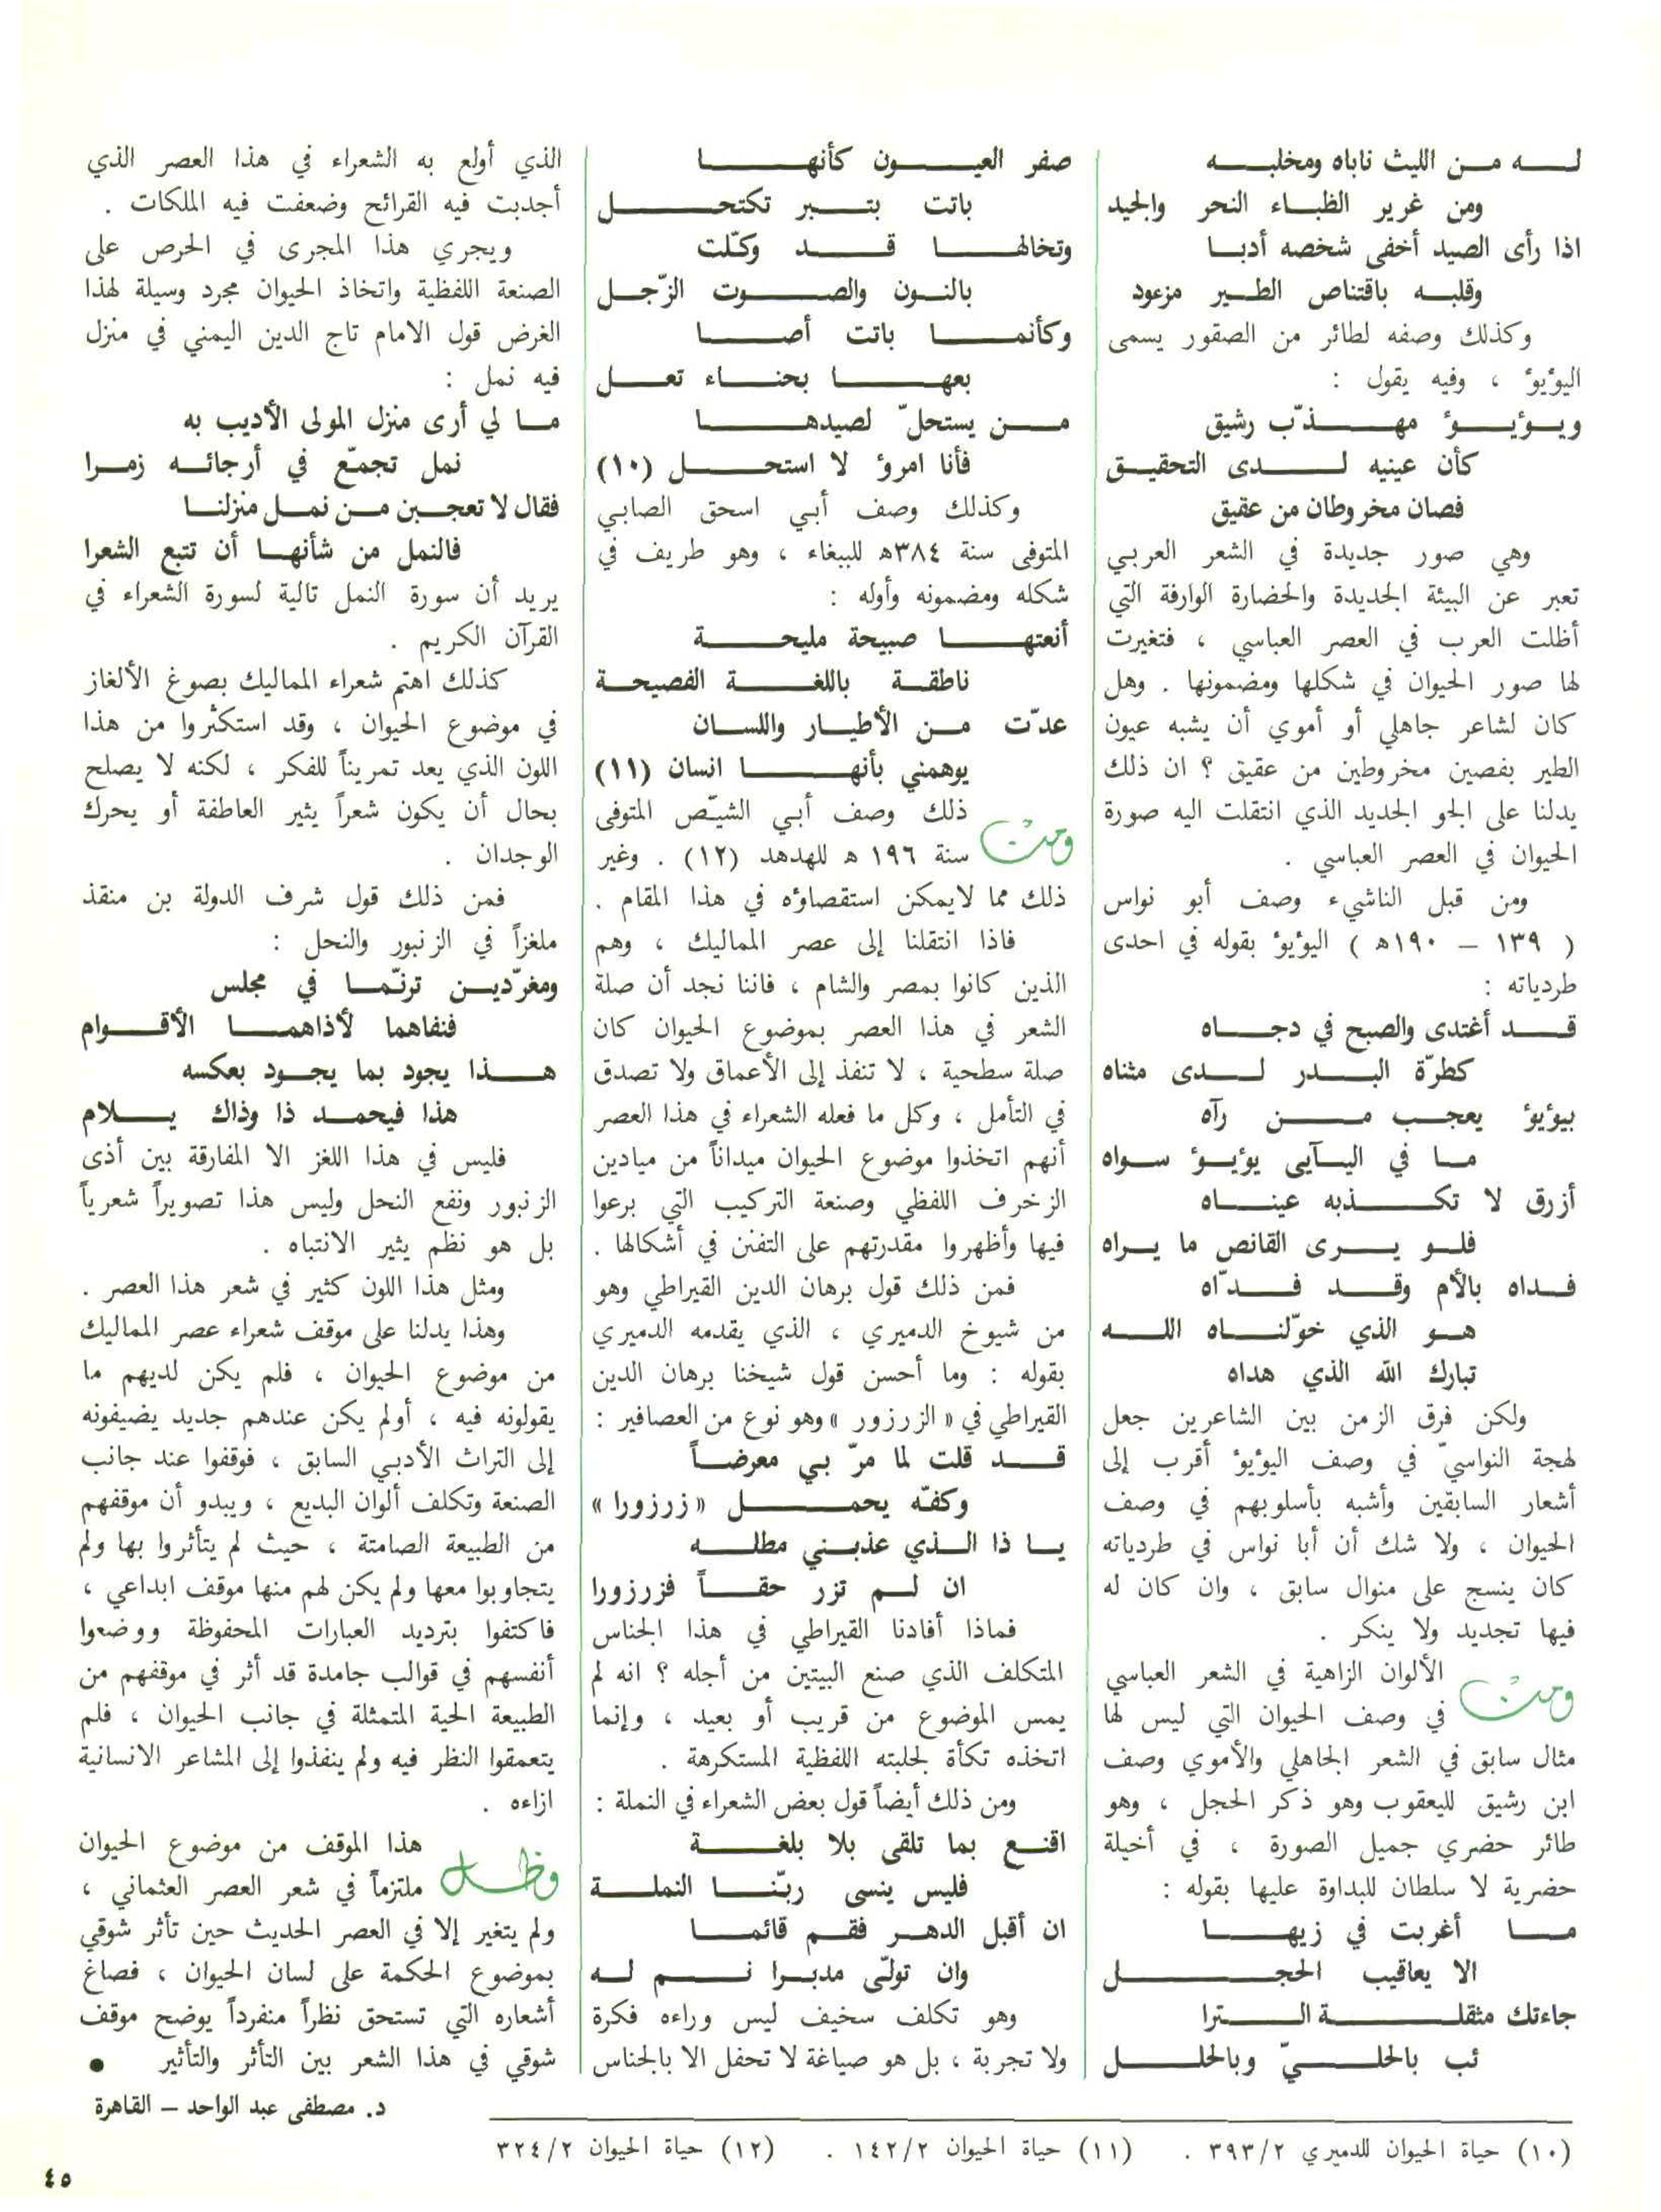 له من الليث ناباه ومخلبه
ومن غرير الظباء النحر والجيد
اذا رأى الصيد أخفى شخصه أدبا
وقلبه باقتناص الطير مزءود
وكذلك وصفه لطائر من الصقور يسمى
اليؤيؤ ، وفيه يقول :
ويؤيؤ مهذّب رشيق
كأن عينيه لدى التحقيق
فصان مخروطان من عقيق
وهي صور جديدة في الشعر العربي
تعبر عن البيئة الجديدة والحضارة الوارفة التي
أظلت العرب في العصر العباسي ، فتغيرت
لها صور الحيوان في شكلها ومضمونها . وهل
كان لشاعر جاهلي أو أموي أن يشبه عيون
الطير بفصين مخروطين من عقيق ؟ ان ذلك
يدلنا على الجو الجديد الذي انتقلت اليه صورة
الحيوان في العصر العباسي .
ومن قبل الناشيء وصف أبو نواس
( ١٣٩ – ١٩٠ه ) اليؤيؤ بقوله في احدى
طردياته :
قد أغتدى والصبح في دجاه
كطرّة البدر لدى مثناه
بيؤيؤ يعجب من رآه
ما في اليآيى يؤيؤ سواه
أزرق لا تكذبه عيناه
فلو يرى القانص ما يراه
فداه بالأم وقد فدّاه
هو الذي خوّلناه الله
تبارك الله الذي هداه
ولكن فرق الزمن بين الشاعرين جعل
لهجة النواسيّ في وصف اليؤيؤ أقرب إلى
أشعار السابقين وأشبه بأسلوبهم في وصف
الحيوان ، ولا شك أن أبا نواس في طردياته
كان ينسج على منوال سابق ، وان كان له
فيها تجديد ولا ينكر .
ومن الألوان الزاهية في الشعر العباسي
في وصف الحيوان التي ليس لها
مثال سابق في الشعر الجاهلي والأموي وصف
ابن رشيق لليعقوب وهو ذكر الحجل ، وهو
طائر حضري جميل الصورة ، في أخيلة
حضرية لا سلطان للبداوة عليها بقوله :
ما أغربت في زيها
الا يعاقيب الحجل
جاءتك مثقلة الترا
ئب بالحليّ وبالحلل
صفر العيون كأنها
باتت بتبر تكتحل
وتخالها قد وكّلت
بالنون والصوت الزّجل
وكأنما باتت أصا
بعها بحناء تعل
من يستحلّ لصيدها
فأنا امرؤ لا استحل (١٠)
وكذلك وصف أبي اسحق الصابي
المتوفى سنة ٣٨٤ه للببغاء ، وهو طريف في
شكله ومضمونه وأوله :
أنعتها صبيحة مليحة
ناطقة باللغة الفصيحة
عدّت من الأطيار واللسان
يوهمني بأنها انسان (١١)
ومن ذلك وصف أبي الشيّص المتوفى
سنة ١٩٦ ه للهدهد (١٢) . وغير
ذلك مما لايمكن استقصاؤه في هذا المقام .
فاذا انتقلنا إلى عصر المماليك ، وهم
الذين كانوا بمصر والشام ، فاننا نجد أن صلة
الشعر في هذا العصر بموضوع الحيوان كان
صلة سطحية ، لا تنفذ إلى الأعماق ولا تصدق
في التأمل ، وكل ما فعله الشعراء في هذا العصر
أنهم اتخذوا موضوع الحيوان ميداناً من ميادين
الزخرف اللفظي وصنعة التركيب التي برعوا
فيها وأظهروا مقدرتهم على التفنن في أشكالها .
فمن ذلك قول برهان الدين القيراطي وهو
من شيوخ الدميري ، الذي يقدمه الدميري
بقوله : وما أحسن قول شيخنا برهان الدين
القيراطي في « الزرزور » وهو نوع من العصافير :
قد قلت لما مرّ بي معرضاً
وكفّه يحمل « زرزورا »
يا ذا الذي عذبني مطله
ان لم تزر حقاً فزرزورا
فماذا أفادنا القيراطي في هذا الجناس
المتكلف الذي صنع البيتين من أجله ؟ انه لم
يمس الموضوع من قريب أو بعيد ، وإنما
اتخذه تكأة لجلبته اللفظية المستكرهة .
ومن ذلك أيضاً قول بعض الشعراء في النملة :
اقنع بما تلقى بلا بلغة
فليس ينسى ربّنا النملة
ان أقبل الدهر فقم قائما
وان تولّى مدبرا نم له
وهو تكلف سخيف ليس وراءه فكرة
ولا تجربة ، بل هو صياغة لا تحفل الا بالجناس
الذي أولع به الشعراء في هذا العصر الذي
أجدبت فيه القرائح وضعفت فيه الملكات .
ويجري هذا المجرى في الحرص على
الصنعة اللفظية واتخاذ الحيوان مجرد وسيلة لهذا
الغرض قول الامام تاج الدين اليمني في منزل
فيه نمل :
ما لي أرى منزل المولى الأديب به
نمل تجمّع في أرجائه زمرا
فقال لا تعجبن من نمل منزلنا
فالنمل من شأنها أن تتبع الشعرا
يريد أن سورة النمل تالية لسورة الشعراء في
القرآن الكريم .
كذلك اهتم شعراء المماليك بصوغ الألغاز
في موضوع الحيوان ، وقد استكثروا من هذا
اللون الذي يعد تمريناً للفكر ، لكنه لا يصلح
بحال أن يكون شعراً يثير العاطفة أو يحرك
الوجدان .
فمن ذلك قول شرف الدولة بن منقذ
ملغزاً في الزنبور والنحل :
ومغرّدين ترنّما في مجلس
فنفاهما لأذاهما الأقوام
هذا يجود بما يجود بعكسه
هذا فيحمد ذا وذاك يلام
فليس في هذا اللغز الا المفارقة بين أذى
الزنبور ونفع النحل وليس هذا تصويراً شعرياً
بل هو نظم يثير الانتباه .
ومثل هذا اللون كثير في شعر هذا العصر .
وهذا يدلنا على موقف شعراء عصر المماليك
من موضوع الحيوان ، فلم يكن لديهم ما
يقولونه فيه ، أولم يكن عندهم جديد يضيفونه
إلى التراث الأدبي السابق ، فوقفوا عند جانب
الصنعة وتكلف ألوان البديع ، ويبدو أن موقفهم
من الطبيعة الصامتة ، حيث لم يتأثروا بها ولم
يتجاوبوا معها ولم يكن لهم منها موقف ابداعي ،
فاكتفوا بترديد العبارات المحفوظة ووضعوا
أنفسهم في قوالب جامدة قد أثر في موقفهم من
الطبيعة الحية المتمثلة في جانب الحيوان ، فلم
يتعمقوا النظر فيه ولم ينفذوا إلى المشاعر الانسانية
ازاءه .
وظل هذا الموقف من موضوع الحيوان
ملتزماً في شعر العصر العثماني ،
ولم يتغير إلا في العصر الحديث حين تأثر شوقي
بموضوع الحكمة على لسان الحيوان ، فصاغ
أشعاره التي تستحق نظراً منفرداً يوضح موقف
شوقي في هذا الشعر بين التأثر والتأثير ●
د. مصطفى عبد الواحد – القاهرة
(١٠) حياة الحيوان للدميري ٣٩٣/٢ . (١١) حياة الحيوان ١٤٢/٢ . (١٢) حياة الحيوان ٣٢٤/٢
٤٥